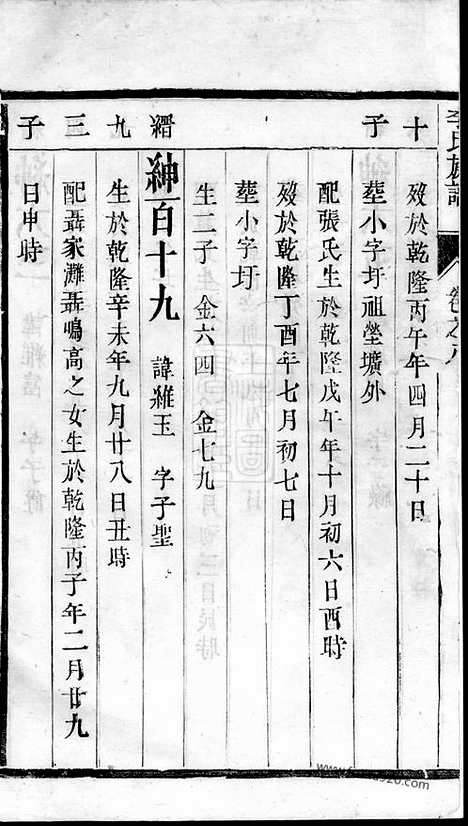 李氏族譜
卷之八
十
子
縉
九
三
子
歿於乾隆丙午年四月二十日
塟小字圩祖塋壙外
配張氏生於乾隆戊午年十月初六日酉時
歿於乾隆丁酉年七月初七日
塟小字圩
生二子 金六四 金七九
紳百十九 諱維玉 字子聖
生於乾隆辛未年九月廿八日丑時
配聶家灘聶鳴高之女生於乾隆丙子年二月廿九
日申時